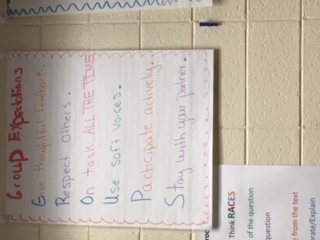 Group Expectations
Give thoughtful feedback.
Respect Others.
On task ALL THE TIME
Use soft voices.
Participate actively.
Stay with your partner.
Think RACES
of the question
question
from the text
rate/Explain